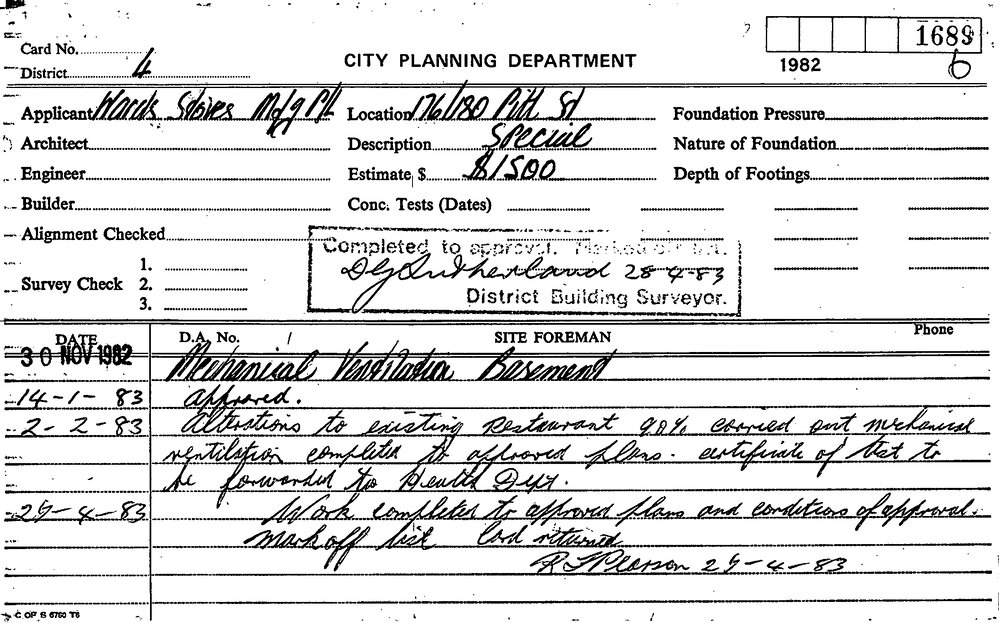 Card No.
1689
District 4
CITY PLANNING DEPARTMENT
1982
6
Applicant Wards Stores Mdg P/L Location 176/180 Pitt St Foundation Pressure
Architect Description Special Nature of Foundation
Engineer Estimate $ $1500 Depth of Footings
Builder Conc. Tests (Dates)
Alignment Checked
Completed to approval. Marked off list.
Survey Check 1.
2.
3.
D G Sutherland 28-4-83
District Building Surveyor.
DATE D.A. No. SITE FOREMAN Phone
30 NOV 1982 Mechanical Ventilation Basement
14-1-83 approved.
2-2-83 Alterations to existing restaurant 90% carried out mechanical
ventilation completed to approved plans. certificate of test to
be forwarded to Health Dept.
Work completed to approved plans and conditions of approval.
Mark off list Card returned
-4-83
C OF S 6760 T6